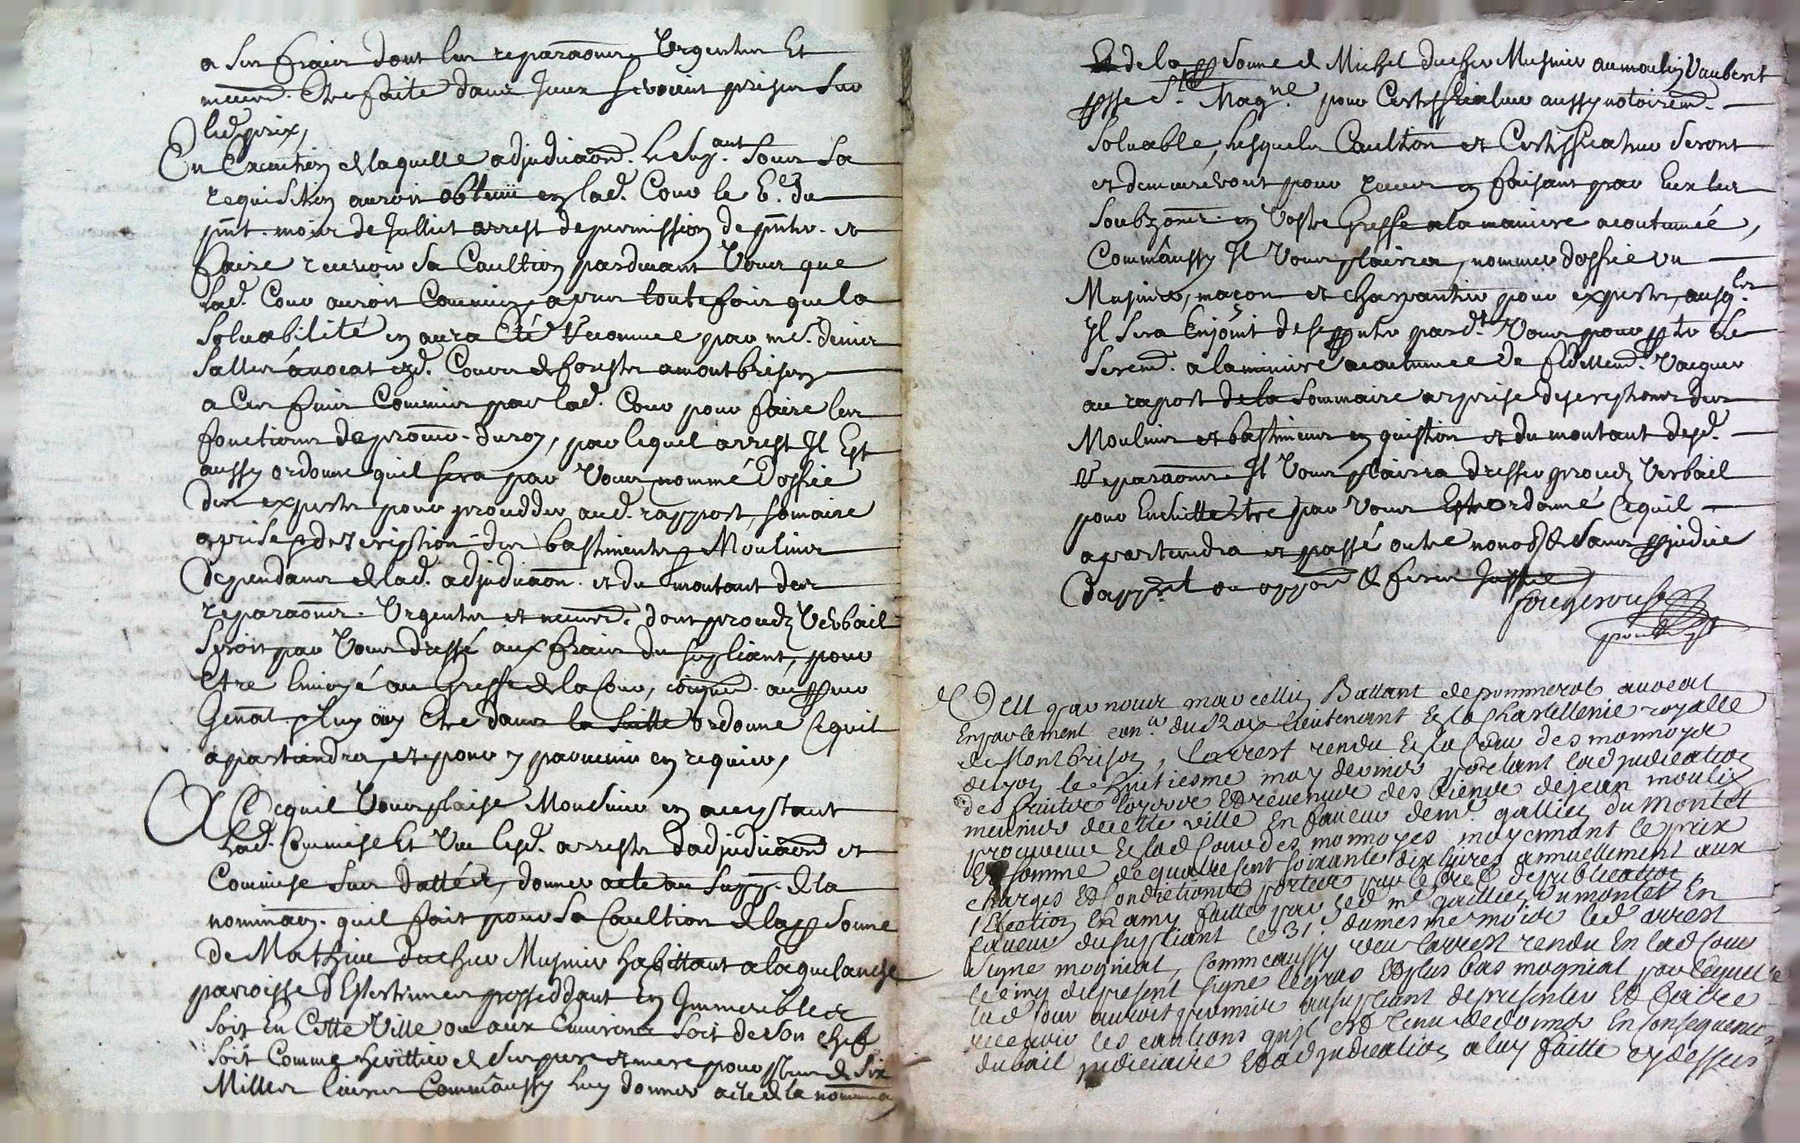 a ses fraix dont les reparaõns Urgentes Et
necess. Etre faite dans Jceux seroient prises sur
led. prix,
En Execution de laquelle adjudicaõn. Le supp.ant sous sa
requisition auroit obtenu en lad. Cour le 6.e du
pñt. mois de Julliet arrest de permission de pñter. et
faire recevoir sa Caultion pardevant Vous que
Lad. Cour auroit Commis, apres toutefois que la
soluabilité en aura Eté Reconnue par me. denis
Saller avocat ezd. Cours de forestz a montbrison
a Ces fins Commis par lad. Cour pour faire les
fonctions de procur. du roy, par lequel arrest Il Est
aussy ordonné quil sera par Vous nommé d'office
des experts pour proceder aud. rapport, somaire
aprise et description des bastiments Moulins
dependans de lad. adjudicaõn. et du montant des
reparaõns. Urgentes et necess. dont procez Verbail
seroit par Vous dressé aux fraix du supliant, pour
Etre Envoyé au Greffe de la Cour, comuniq. au procur
Genal pluy ouy Etre dans la suitte ordonné Ce quil
apartiendra, et pour y parvenir en requier,
A Ce quil Vous plaise Monsieur en acceptant
Lad. Commise Et Vue lesd. arrests d'adjudicaõn et
Commise sus dattéz, donner acte au supp. de la
nominaõn. quil fait pour sa Caultion de la psonne
de Mathieu ducher Musnier habittant a la quelanche
paroisse d'Estertines possedant En Jmmeubles
soit En Cette Ville ou aux Environs soit de son chef
soit Comme herittier de ses pere et mere pour plus de six
Milles livres Comm'aussy luy donner acte de la nominaõn
Et de la psonne de Michel ducher Musnier au moulin Vauberet
psse Ste. Magne. pour Certifficateur aussy notoirem.
soluable, lesquels Caultion et Certifficateur seront
et demeureront pour receus en faisant par Eux les
soubzõns. en Vostre Greffe a la maniere acoutumée,
Comm'aussy Il Vous plaira, nommer d'office un
Musnier, maçon et charpantier pour experts, ausq.ls
Il sera Enjoint de se pñter pard.t Vous pour pter le
serem. a la miniere acoutumée de fidellem. Vacquer
au raport de la sommaire aprise descriptions des
Moulins et bastiments en question et du montant desd.
Reparaõns Il Vous plaira dresser procez Verbail
pour Ensuitte Etre par Vous Estre ordonné Ce quil
apartiendra et passé outre nonob. & sans prejudice
d'appel ou oppõn & ferez Justice
Fougerouse
procur du supt
Veu par nous marcellin Battant de pommerol avocat
En parlement con.er du Roy Lieutenant de la Chastellenie royalle
de Montbrison, Larrest rendu de la Cour des monnoyes
de lyon le huitiesme may dernier portant ladjudication
des fruits loyers Et revenus des biens de jean moulin
meusnier de cette ville En faveur de me. gallier du montet
procureur de lad Cour des monnoyes moyennant le prix
Et somme de quatre sent soixante dix livres annuellement aux
charges Et Conditions portées par le bref de publication
lElection En amy faitte par led me gallier du montet En
faveur du supliant le 31.e du mesme mois led arrest
signe mogniat, Comme aussy veu larrest rendu En lad Cour
le cinq du present signe legras Et plus bas mogniat par lequel
lad Cour auroit permis au supliant de presenter Et faire
recevoir les cautions quil est tenu de donner En Consequence
du bail judiciaire Et adjudication a luy faitte cy dessus